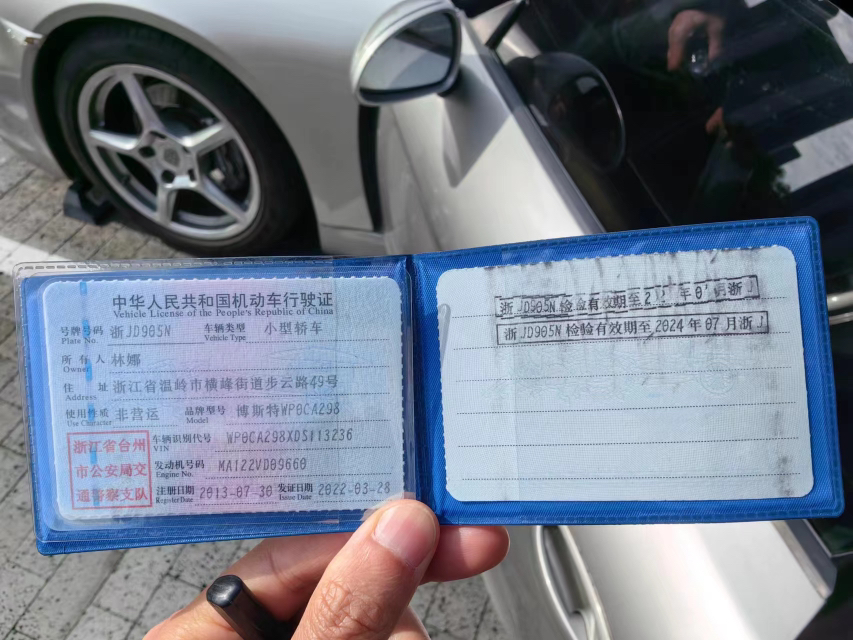 中华人民共和国机动车行驶证
Vehicle License of the People's Republic of China
号牌号码 浙JD905N 车辆类型 小型轿车
Plate No. Vehicle Type
所有人 林娜
Owner
住址 浙江省温岭市横峰街道步云路49号
Address
使用性质 非营运 品牌型号 博斯特WP0CA298
Use Character Model
浙江省台州
市公安局交
通警察支队
车辆识别代号 WP0CA298XDS113236
VIN
发动机号码 MA122VD09660
Engine No.
注册日期 2013-07-30 发证日期 2022-03-28
Register Date Issue Date
浙JD905N检验有效期至 年 月浙J
浙JD905N检验有效期至2024年07月浙J